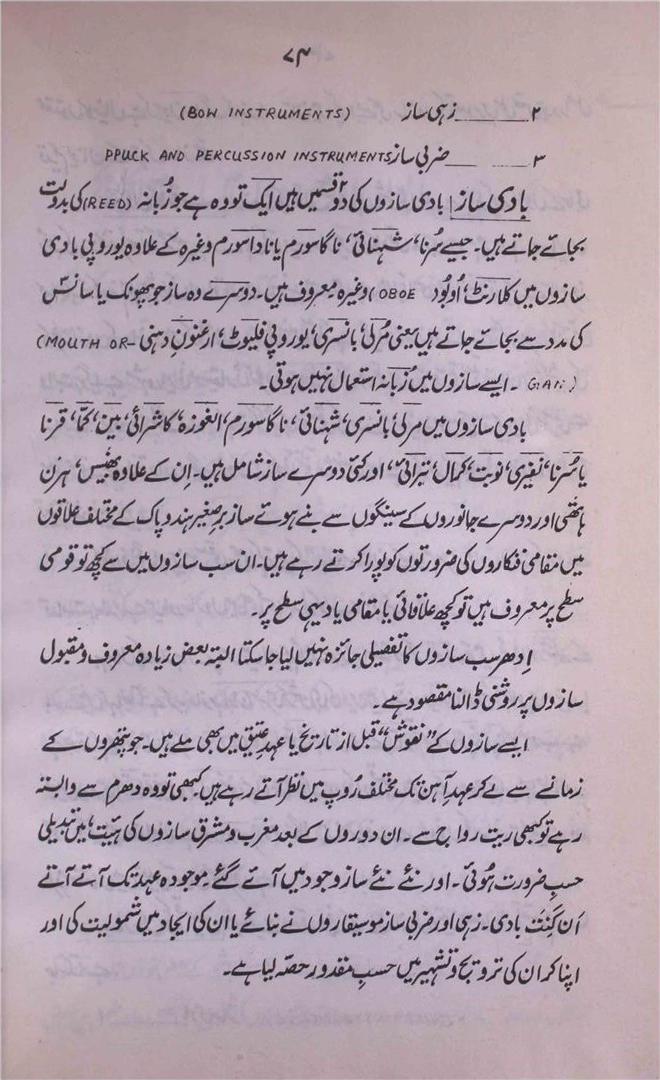 ۷۴
۲ــــــ زہی ساز (BOW INSTRUMENTS)
۳ــــــ ضربی ساز PPUCK AND PERCUSSION INSTRUMENTS
بادی ساز | بادی سازوں کی دو قسمیں ہیں ایک تو وہ ہے جو زُبانہ (REED) کی بدولت
بجائے جاتے ہیں۔ جیسے سُرنا، شہنائی، ناگا سورم یا نادا سورم وغیرہ کے علاوہ یوروپی بادی
سازوں میں کلارنٹ، اُوبُود OBOE) وغیرہ معروف ہیں۔ دوسرے وہ ساز جو پھونک یا سانس
کی مدد سے بجائے جاتے ہیں یعنی مُرلی، بانسری، یوروپی فلیوٹ، ارغنونِ دہنی (MOUTH OR-
GAN) ۔ ایسے سازوں میں زُبانہ استعمال نہیں ہوتی۔
بادی سازوں میں مرلی، بانسری، شہنائی، ناگا سورم، الغوزہ، کاشرائی، بین، کما، قرنا
یا سُرنا، نفیری، نوبت، کمال، تیرائی، اور کئی دوسرے ساز شامل ہیں۔ اِن کے علاوہ بھینس، ہرن
ہاتھی اور دوسرے جانوروں کے سینگوں سے بنے ہوئے ساز برِصغیر ہند و پاک کے مختلف علاقوں
میں مقامی فنکاروں کی ضرورتوں کو پورا کرتے رہے ہیں۔ ان سب سازوں میں سے کچھ تو قومی
سطح پر معروف ہیں تو کچھ علاقائی یا مقامی یا دیہی سطح پر۔
اِدھر سب سازوں کا تفصیلی جائزہ نہیں لیا جا سکتا البتہ بعض زیادہ معروف و مقبول
سازوں پر روشنی ڈالنا مقصود ہے۔
ایسے سازوں کے "نقوش" قبل از تاریخ یا عہدِ عتیق میں بھی ملے ہیں۔ جو پتھروں کے
زمانے سے لے کر عہدِ آہن تک مختلف رُوپ میں نظر آتے رہے ہیں۔ کبھی تو وہ دھرم سے وابستہ
رہے تو کبھی ریت رواج سے۔ ان دوروں کے بعد مغرب و مشرق سازوں کی ہیئت، میں تبدیلی
حسبِ ضرورت ہوئی۔ اور نئے نئے ساز وجود میں آتے گئے۔ موجودہ عہد تک آتے آتے
اَن گِنَت بادی۔ زہی اور ضربی ساز موسیقاروں نے بنائے یا ان کی ایجاد میں شمولیت کی اور
اپنا کر ان کی ترویج و تشہیر میں حسبِ مقدور حصّہ لیا ہے۔